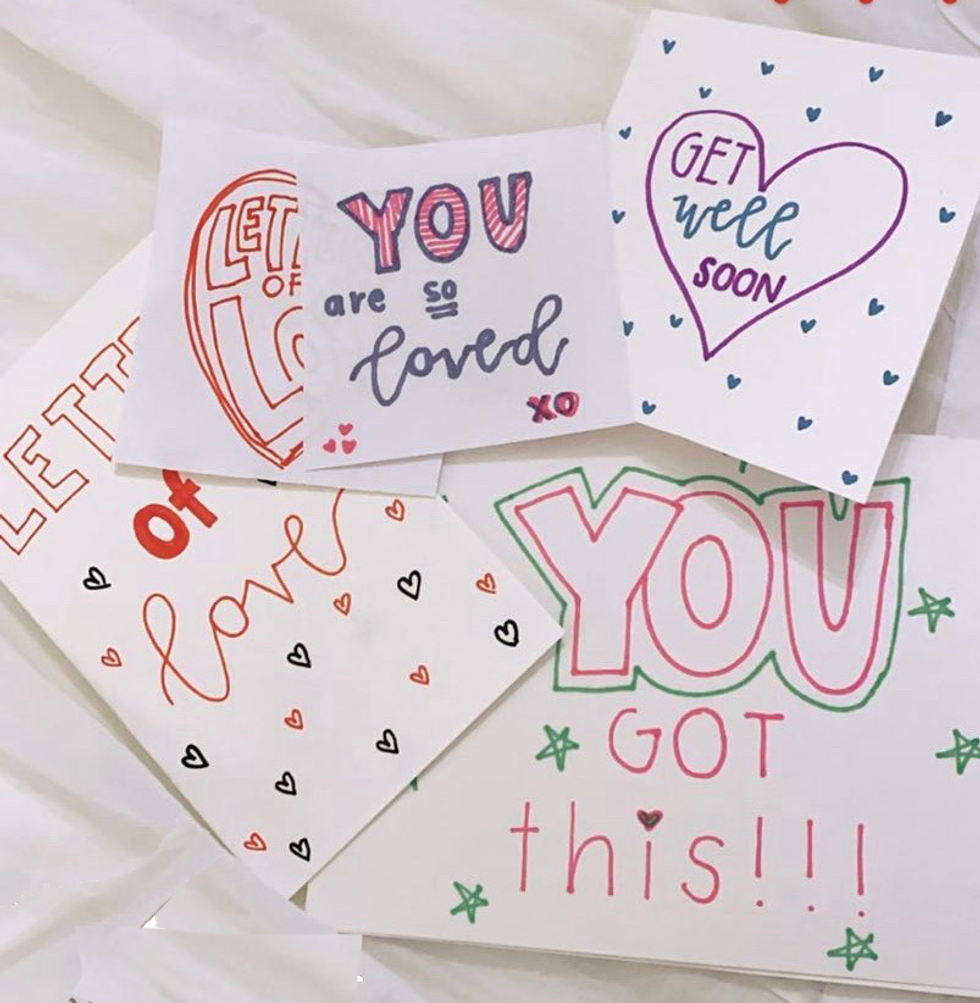 YOU
are so
loved
XO
GET
well
SOON
OF
of
love
YOU
GOT
this!!!